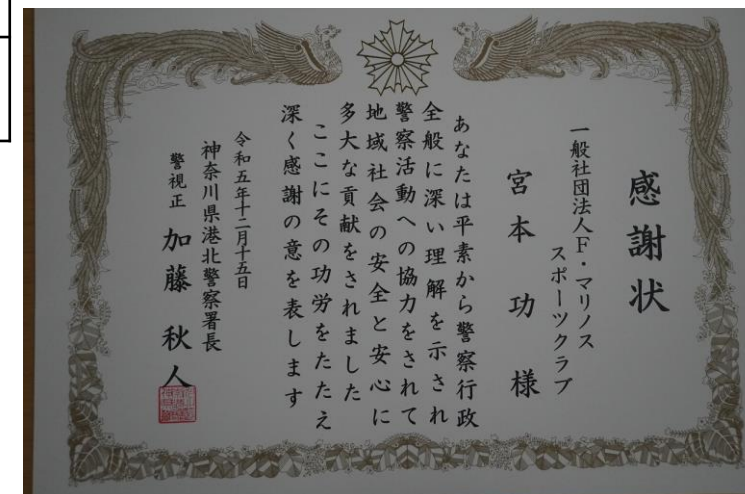 感謝状
一般社団法人F・マリノス
スポーツクラブ
宮本 功 様
あなたは平素から警察行政
全般に深い理解を示され
警察活動への協力をされて
地域社会の安全と安心に
多大な貢献をされました
ここにその功労をたたえ
深く感謝の意を表します
令和五年十二月十五日
神奈川県港北警察署長
警視正 加藤 秋人